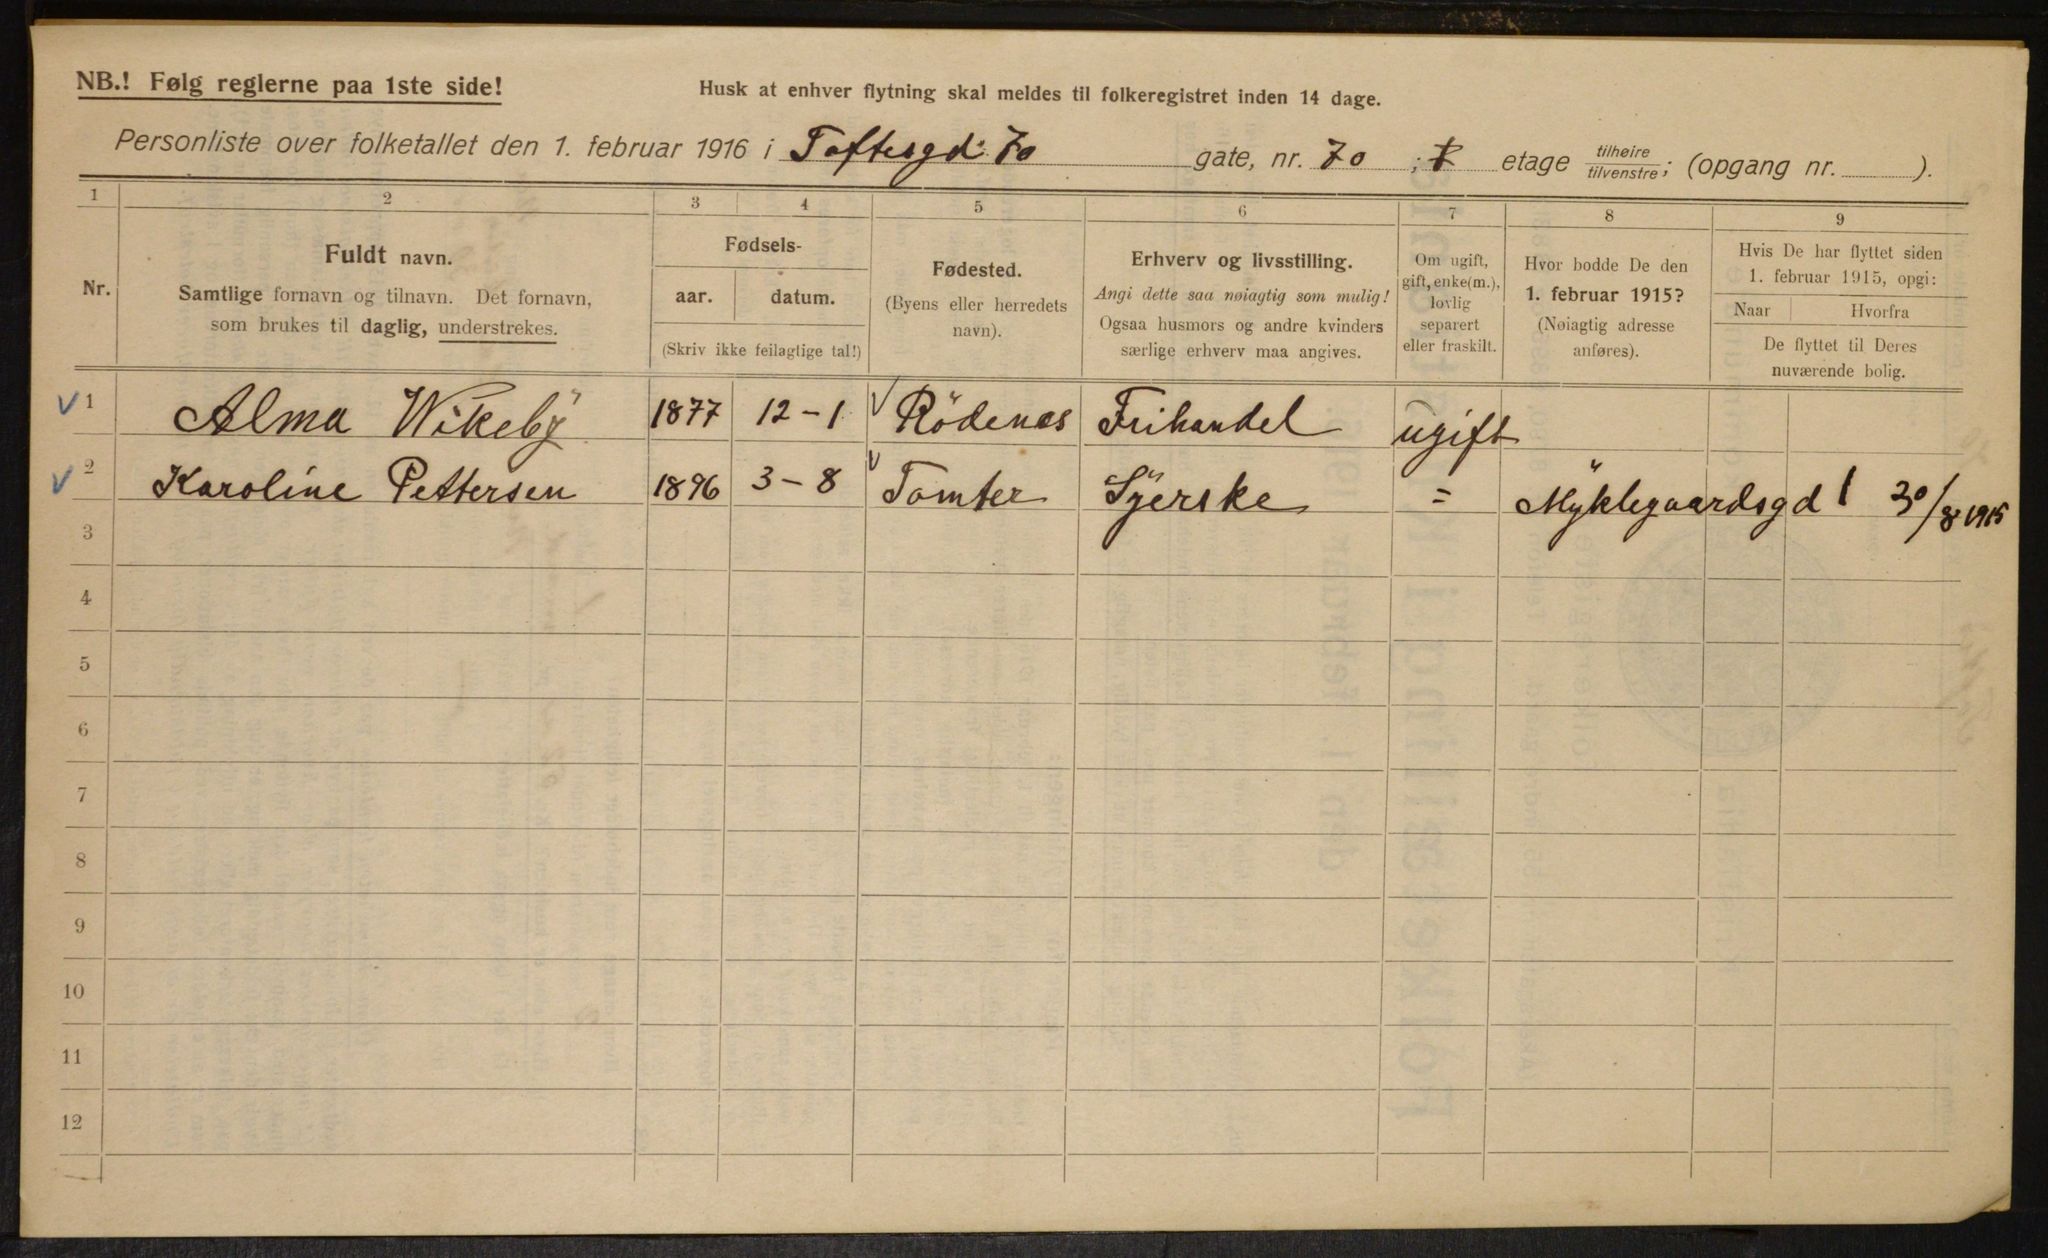 NB.! Følg reglerne paa 1ste side!
Husk at enhver flytning skal meldes til folkeregistret inden 14 dage.
Personliste over folketallet den 1. februar 1916 i Toftesgd: 70 gate, nr. 70 ; etage tilhøire/tilvenstre; (opgang nr. ).
1 2 3 4 5 6 7 8 9
Nr.
Fuldt navn.
Samtlige fornavn og tilnavn. Det fornavn,
som brukes til daglig, understrekes.
Fødsels-
aar. datum.
(Skriv ikke feilagtige tal!)
Fødested.
(Byens eller herredets
navn).
Erhverv og livsstilling.
Angi dette saa nøiagtig som mulig!
Ogsaa husmors og andre kvinders
særlige erhverv maa angives.
Om ugift,
gift, enke(m.),
lovlig
separert
eller fraskilt.
Hvor bodde De den
1. februar 1915?
(Nøiagtig adresse
anføres).
Hvis De har flyttet siden
1. februar 1915, opgi:
Naar Hvorfra
De flyttet til Deres
nuværende bolig.
1 Alma Wikeby 1877 12-1 Rödenes Frihandel ugift
2 Karoline Pettersen 1896 3-8 Tomter Syerske = Myklegaardsgd 1 30/8 1915
3
4
5
6
7
8
9
10
11
12